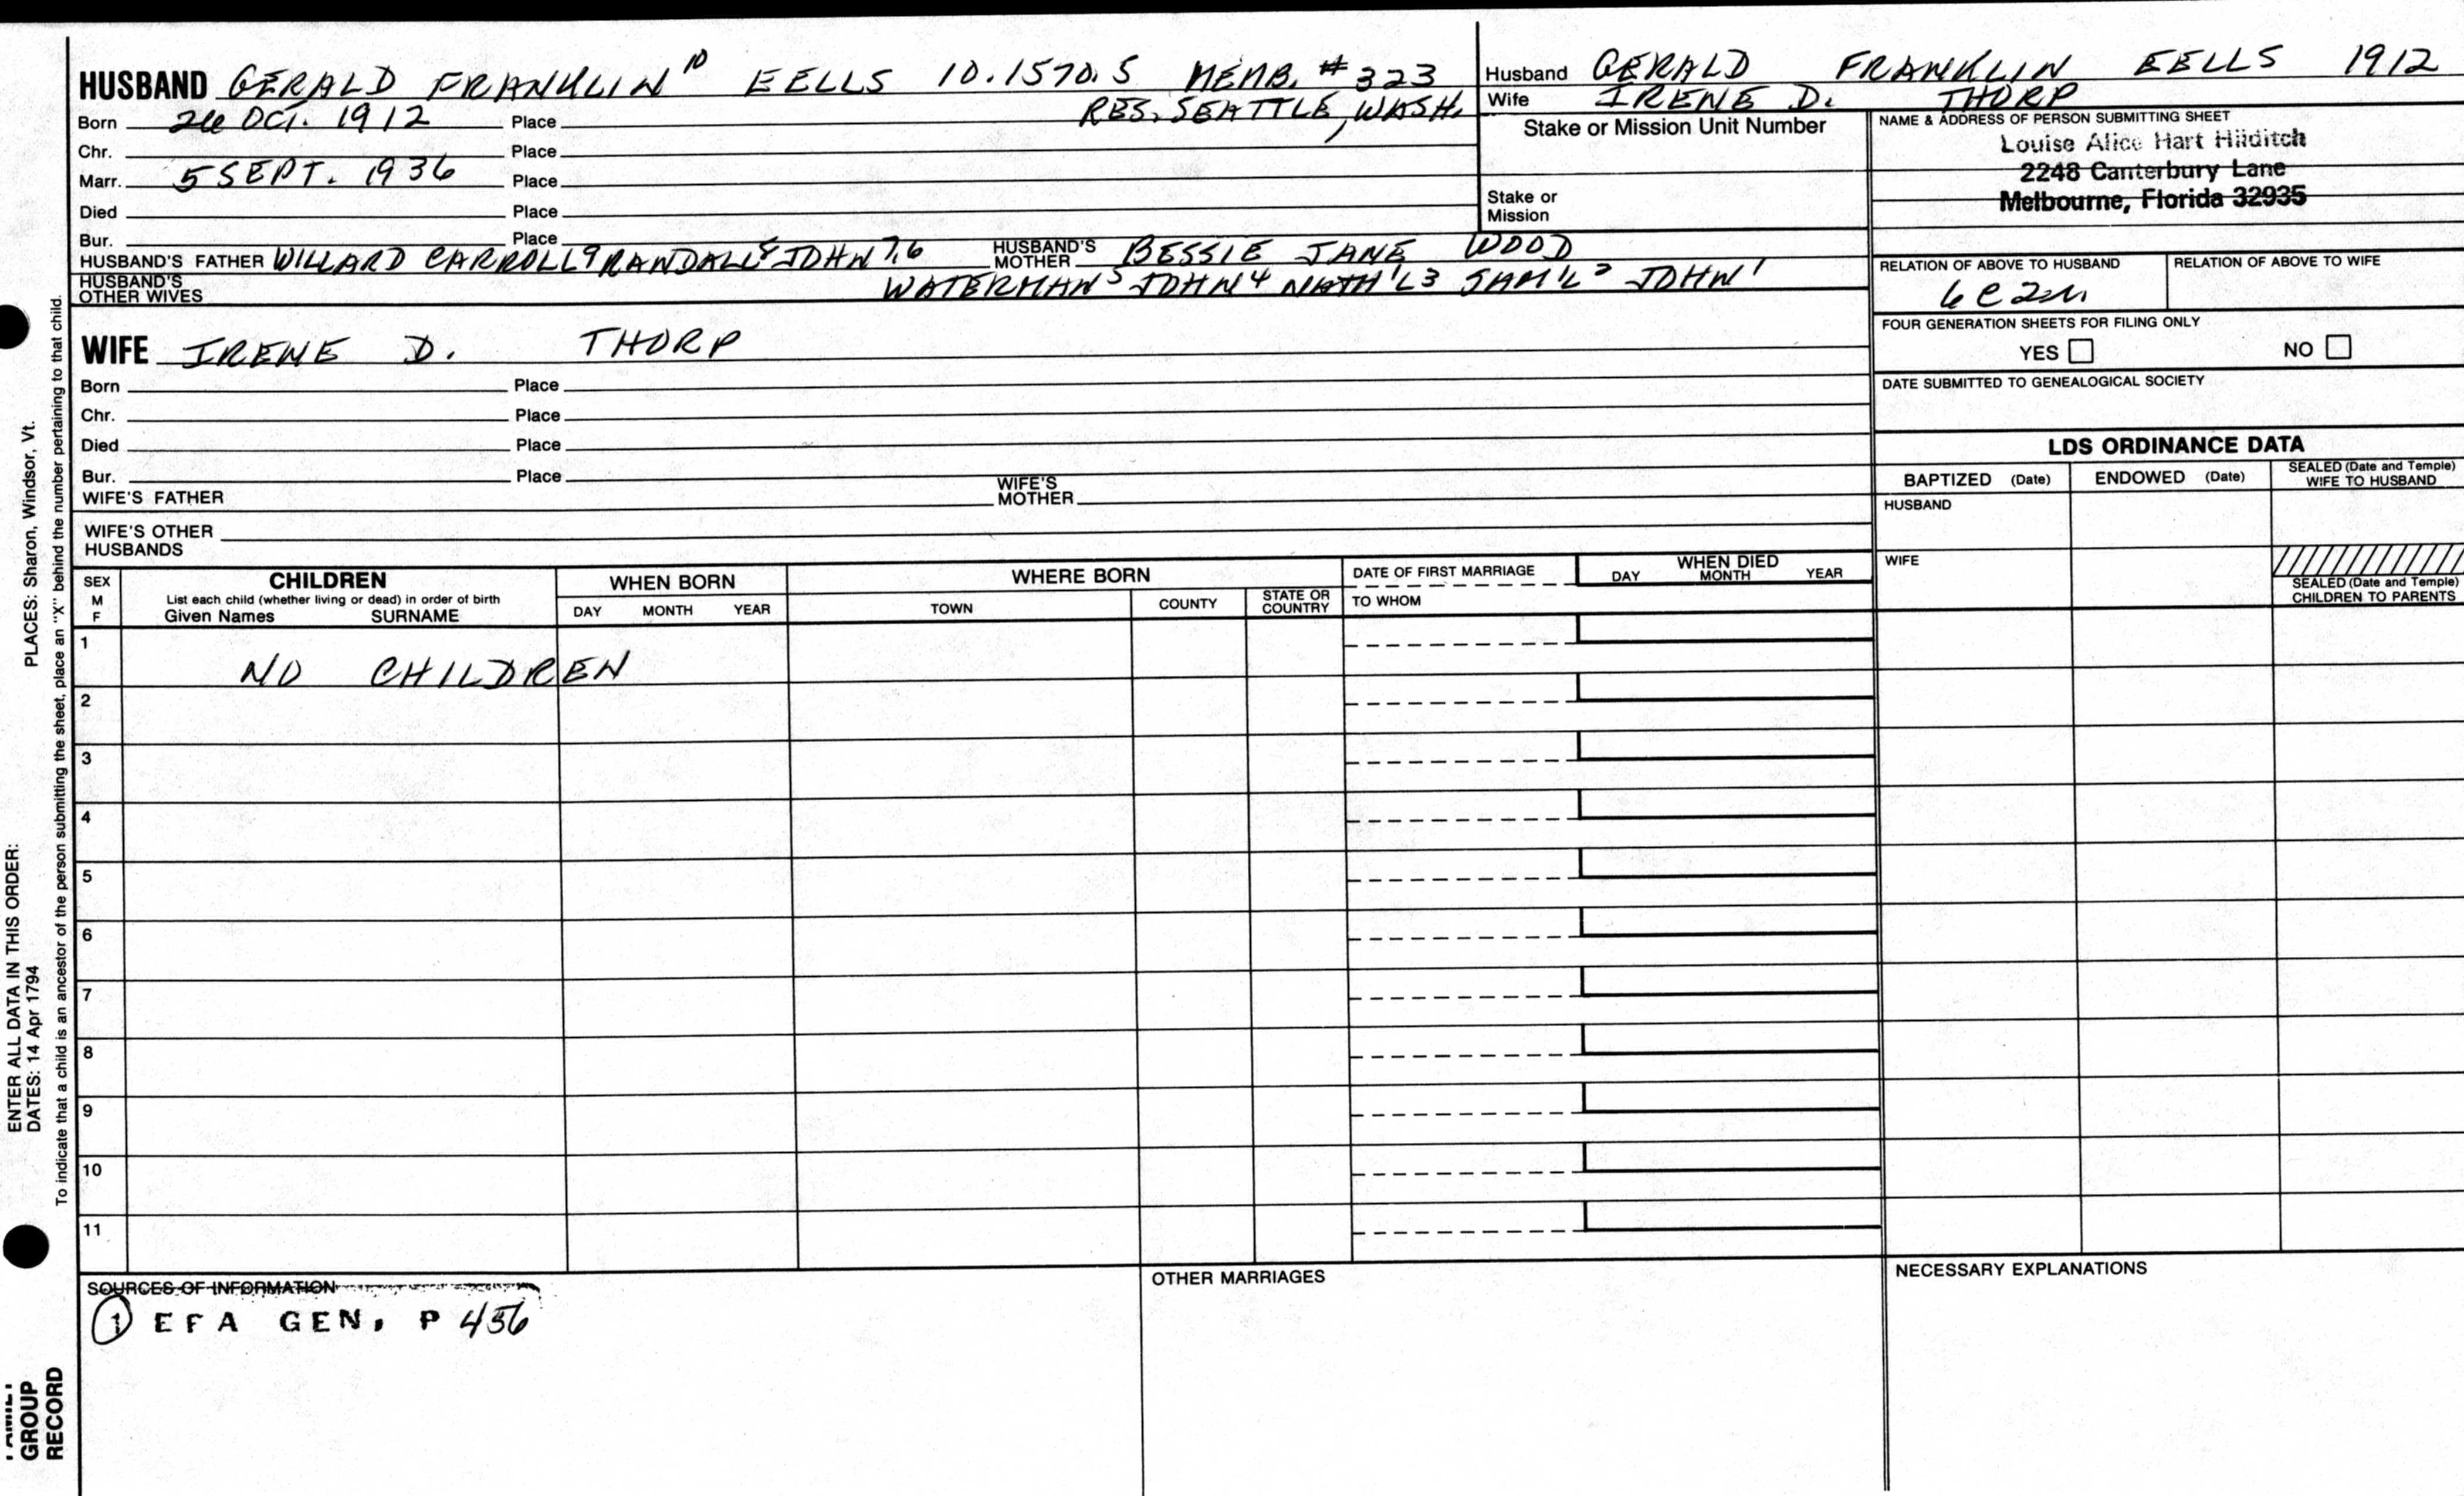 HUSBAND GERALD FRANKLIN 10 EELLS 10.1570.5 MEMB. # 323
RES. SEATTLE, WASH.
Born 26 OCT. 1912 Place
Chr. Place
Marr. 5 SEPT. 1936 Place
Died Place
Bur. Place
HUSBAND'S FATHER WILLARD CARROLL 9 RANDALL 8 JOHN 7,6 HUSBAND'S MOTHER BESSIE JANE WOOD
HUSBAND'S OTHER WIVES WATERMAN 5 JOHN 4 NATH'L 3 SAM'L 2 JOHN 1
Husband GERALD FRANKLIN EELLS 1912
Wife IRENE D. THORP
Stake or Mission Unit Number
Stake or
Mission
NAME & ADDRESS OF PERSON SUBMITTING SHEET
Louise Alice Hart Hilditch
2248 Canterbury Lane
Melbourne, Florida 32935
RELATION OF ABOVE TO HUSBAND RELATION OF ABOVE TO WIFE
6c2m
FOUR GENERATION SHEETS FOR FILING ONLY
YES NO
DATE SUBMITTED TO GENEALOGICAL SOCIETY
WIFE IRENE D. THORP
Born Place
Chr. Place
Died Place
Bur. Place
WIFE'S FATHER WIFE'S MOTHER
WIFE'S OTHER
HUSBANDS
LDS ORDINANCE DATA
BAPTIZED (Date) ENDOWED (Date) SEALED (Date and Temple) WIFE TO HUSBAND
HUSBAND
WIFE
SEALED (Date and Temple)
CHILDREN TO PARENTS
SEX
M
F
CHILDREN
List each child (whether living or dead) in order of birth
Given Names SURNAME
WHEN BORN
DAY MONTH YEAR
WHERE BORN
TOWN COUNTY STATE OR COUNTRY
DATE OF FIRST MARRIAGE
TO WHOM
WHEN DIED
DAY MONTH YEAR
1
NO CHILDREN
2
3
4
5
6
7
8
9
10
11
SOURCES OF INFORMATION
1 EFA GEN, P 456
OTHER MARRIAGES
NECESSARY EXPLANATIONS
PLACES: Sharon, Windsor, Vt.
ENTER ALL DATA IN THIS ORDER:
DATES: 14 Apr 1794
To indicate that a child is an ancestor of the person submitting the sheet, place an "X" behind the number pertaining to that child.
FAMILY
GROUP
RECORD